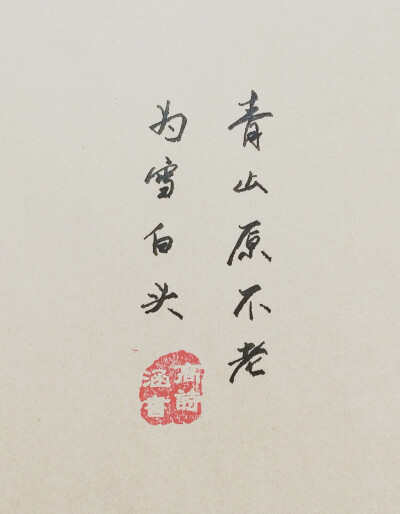 青山原不老
为雪白头